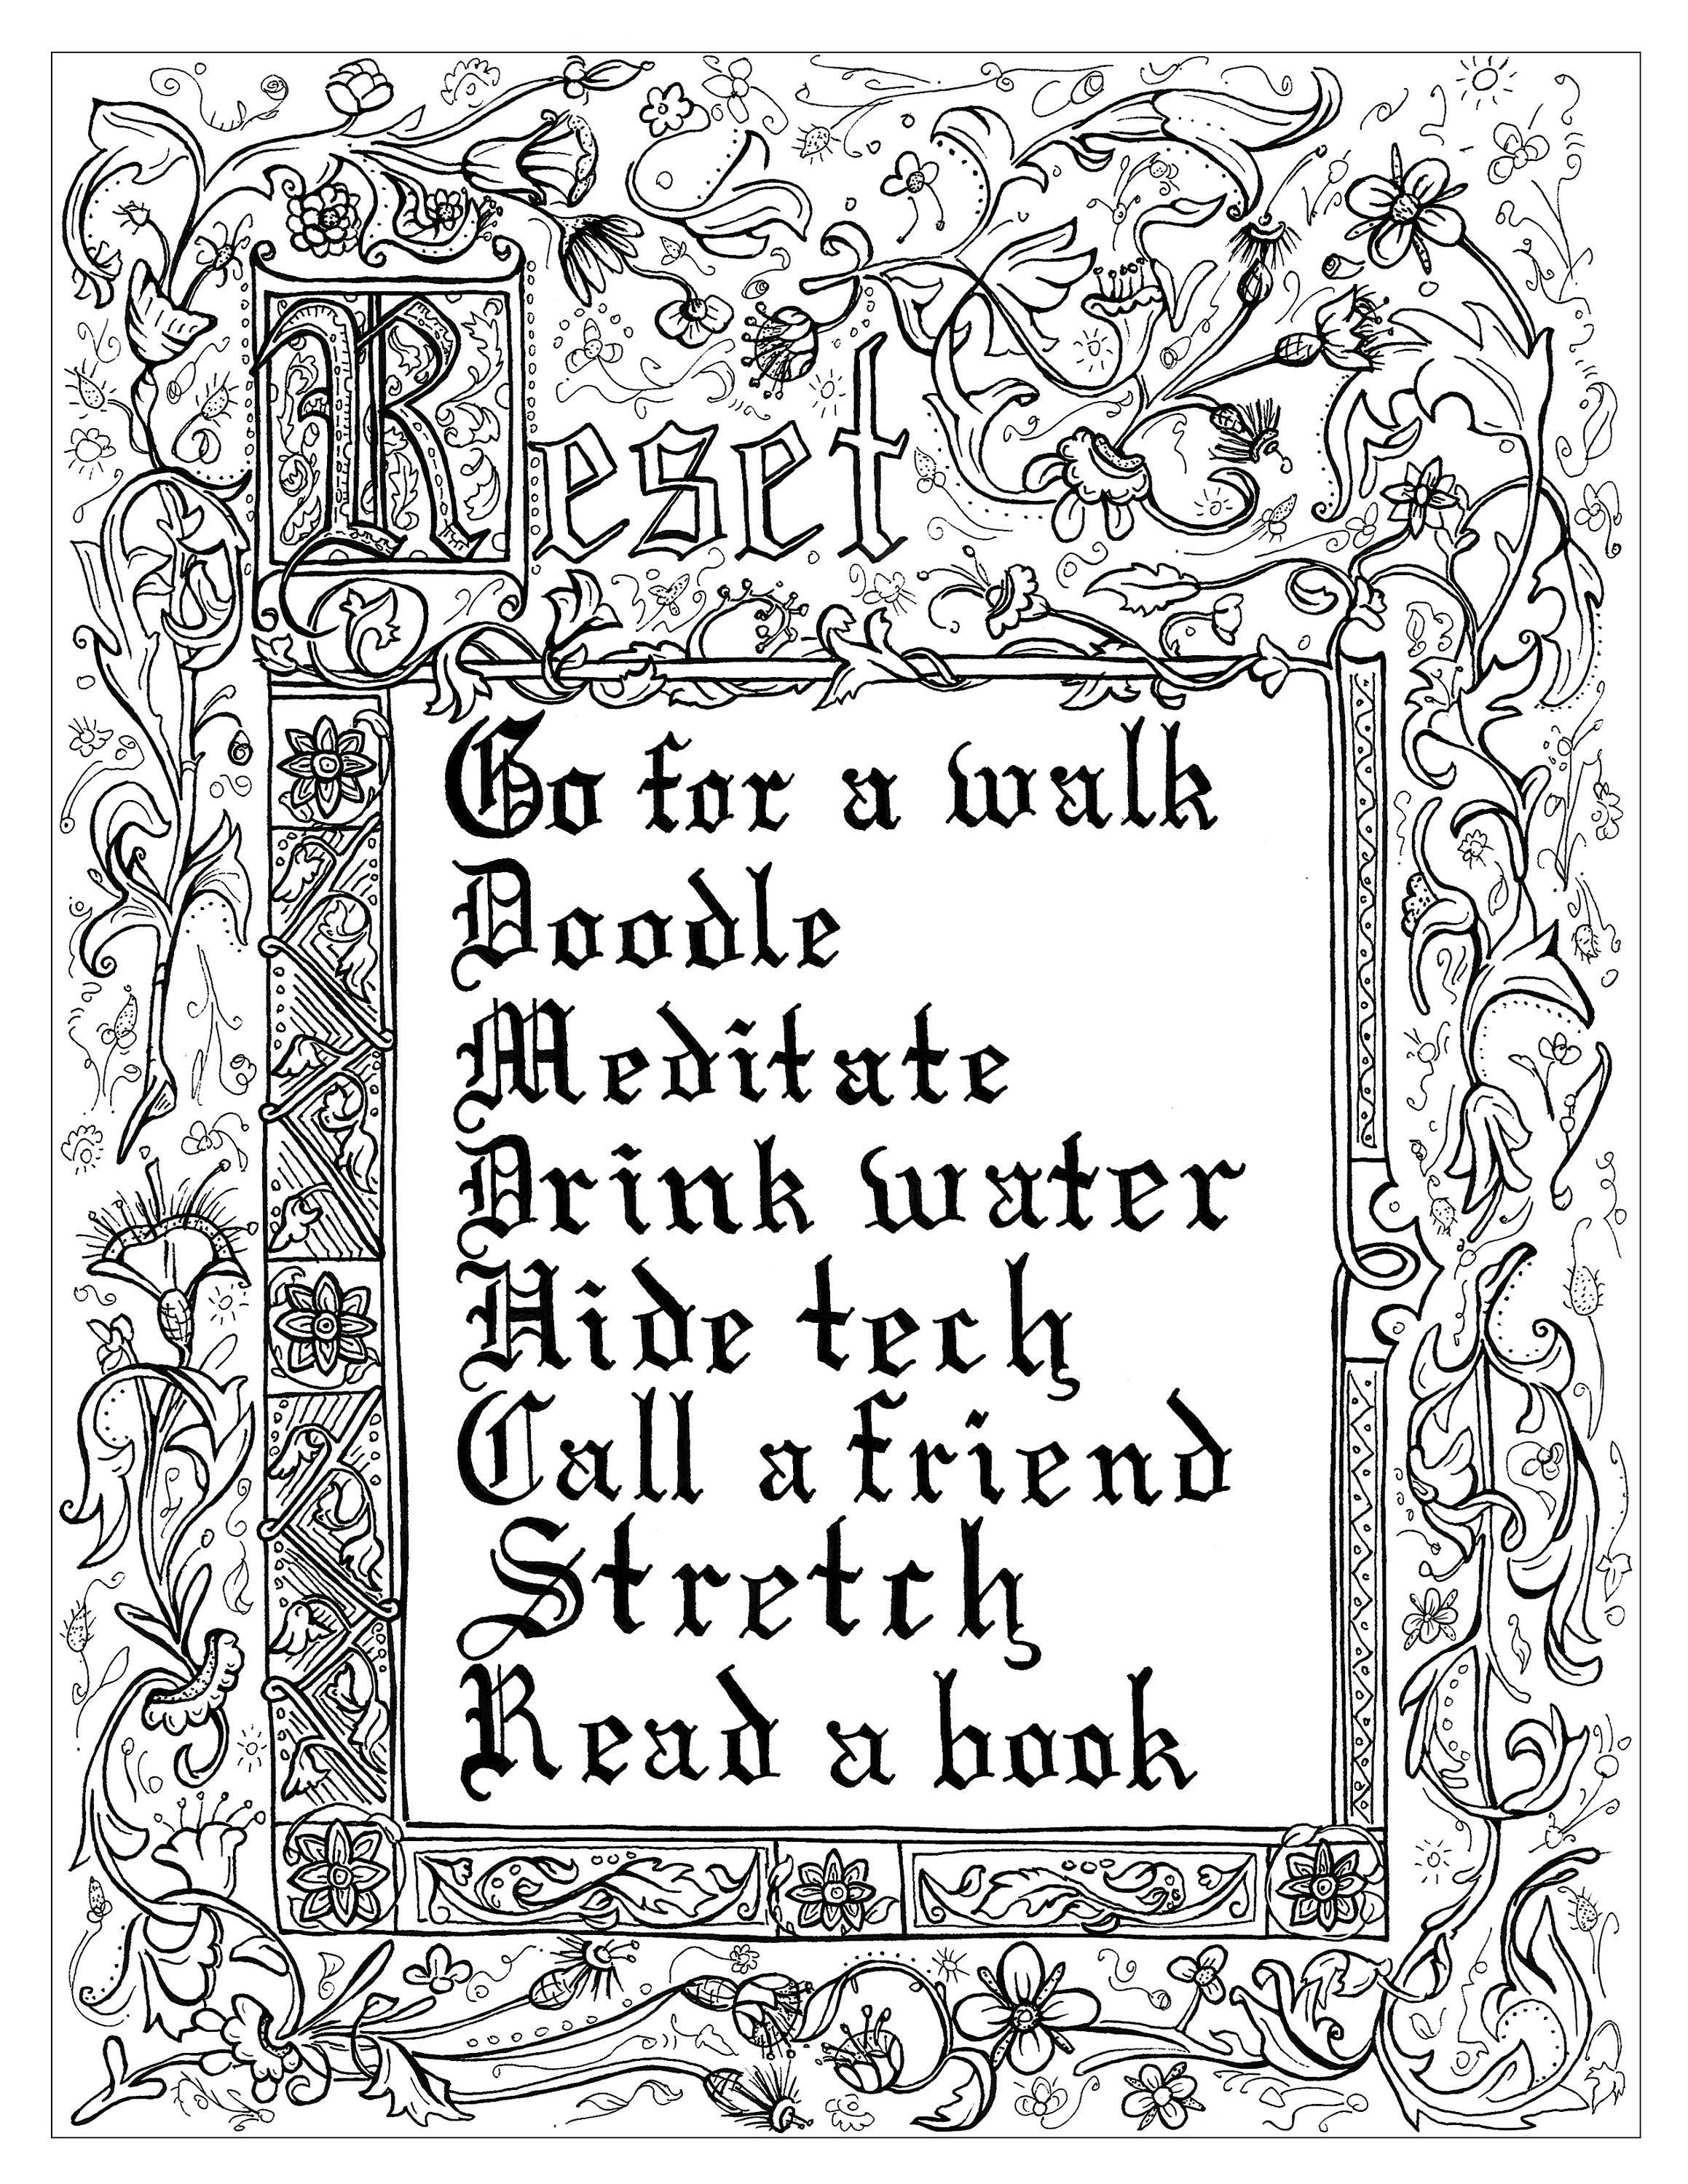 Reset
Go for a walk
Doodle
Meditate
Drink water
Hide tech
Call a friend
Stretch
Read a book